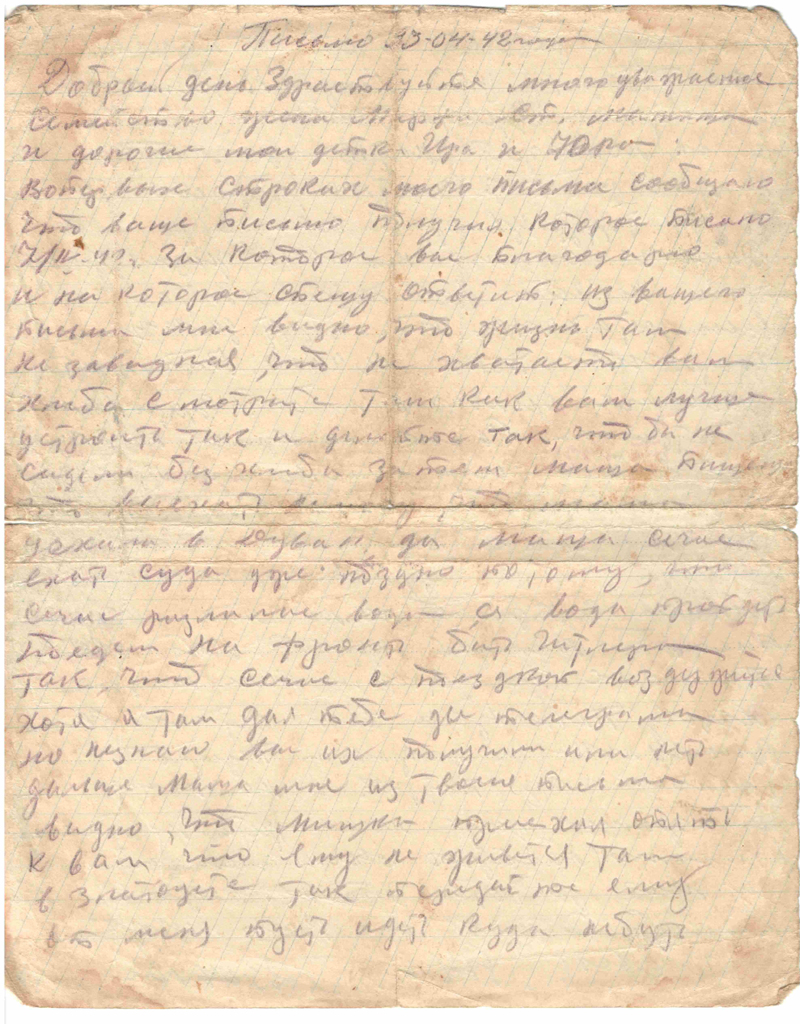 Письмо 33-04-42 года
Добрый день Здраствуйтя многоуважаемое
Семейство жена Маруся
и дорогие мои детки Ира и Юра:
строках моего письма сообщаю
что ваше письмо получил которое писано
За которое вас благодарю
и на которое спешу ответит: из вашего
письма мне видно, что жизнь там
не завидная, что не хватает вам
хлеба смотрите там как вам лучше
устроить так и делайте так, что бы не
сидели без хлеба затем Маша пишешь
что
уехали в Дуван, да Маша сечас
ехат суда уже поздно потому, что
сечас разлилас вода а вода пройдет
поедем на фронт бит Гитлера
так, что сечас с поездкой воздержитес
хотя я там дал тебе две телеграмы
но незнаю вы их получили или нет
дальше Маша мне из твоего письма
видно, что Мишка приехал опять
к вам что ему не живется там
в Златоусте так передайте ему
от меня пусть идет куда нибуть